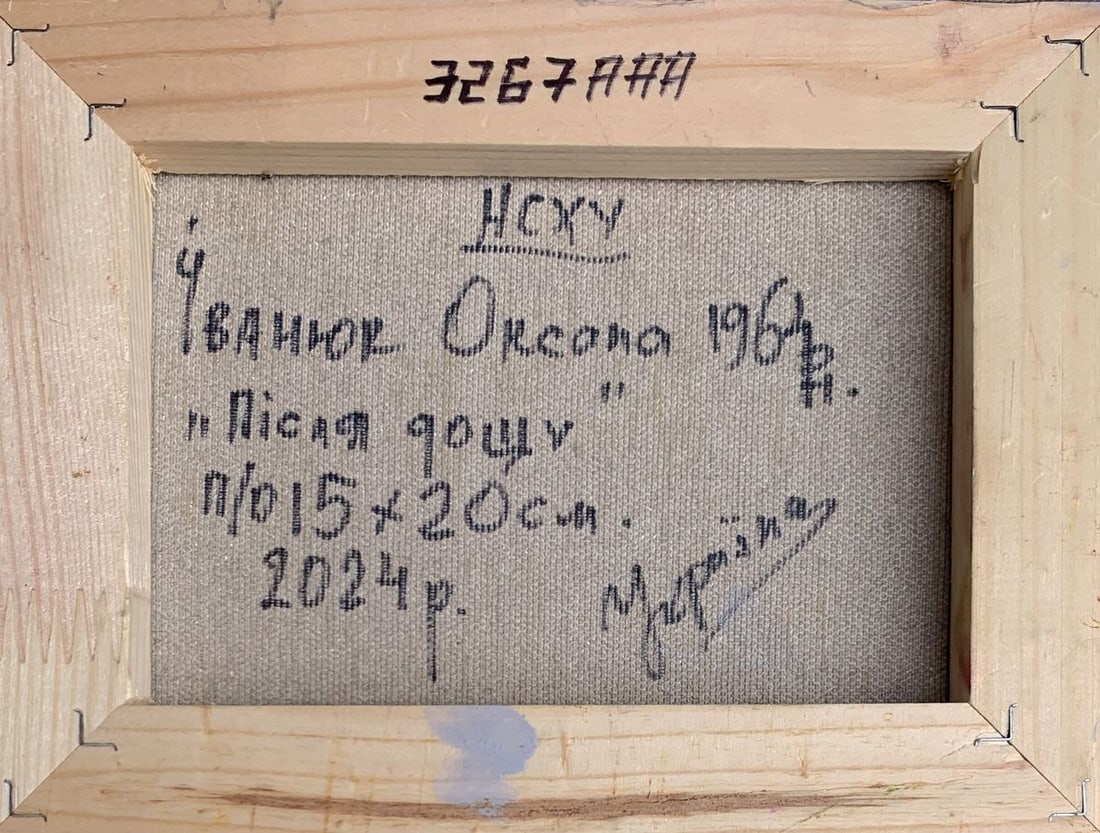 3267AAA
НСХУ
Іванюк Оксана 1961 р.н.
"Після дощу"
п/о 15 x 20 см.
2024 р.
Україна